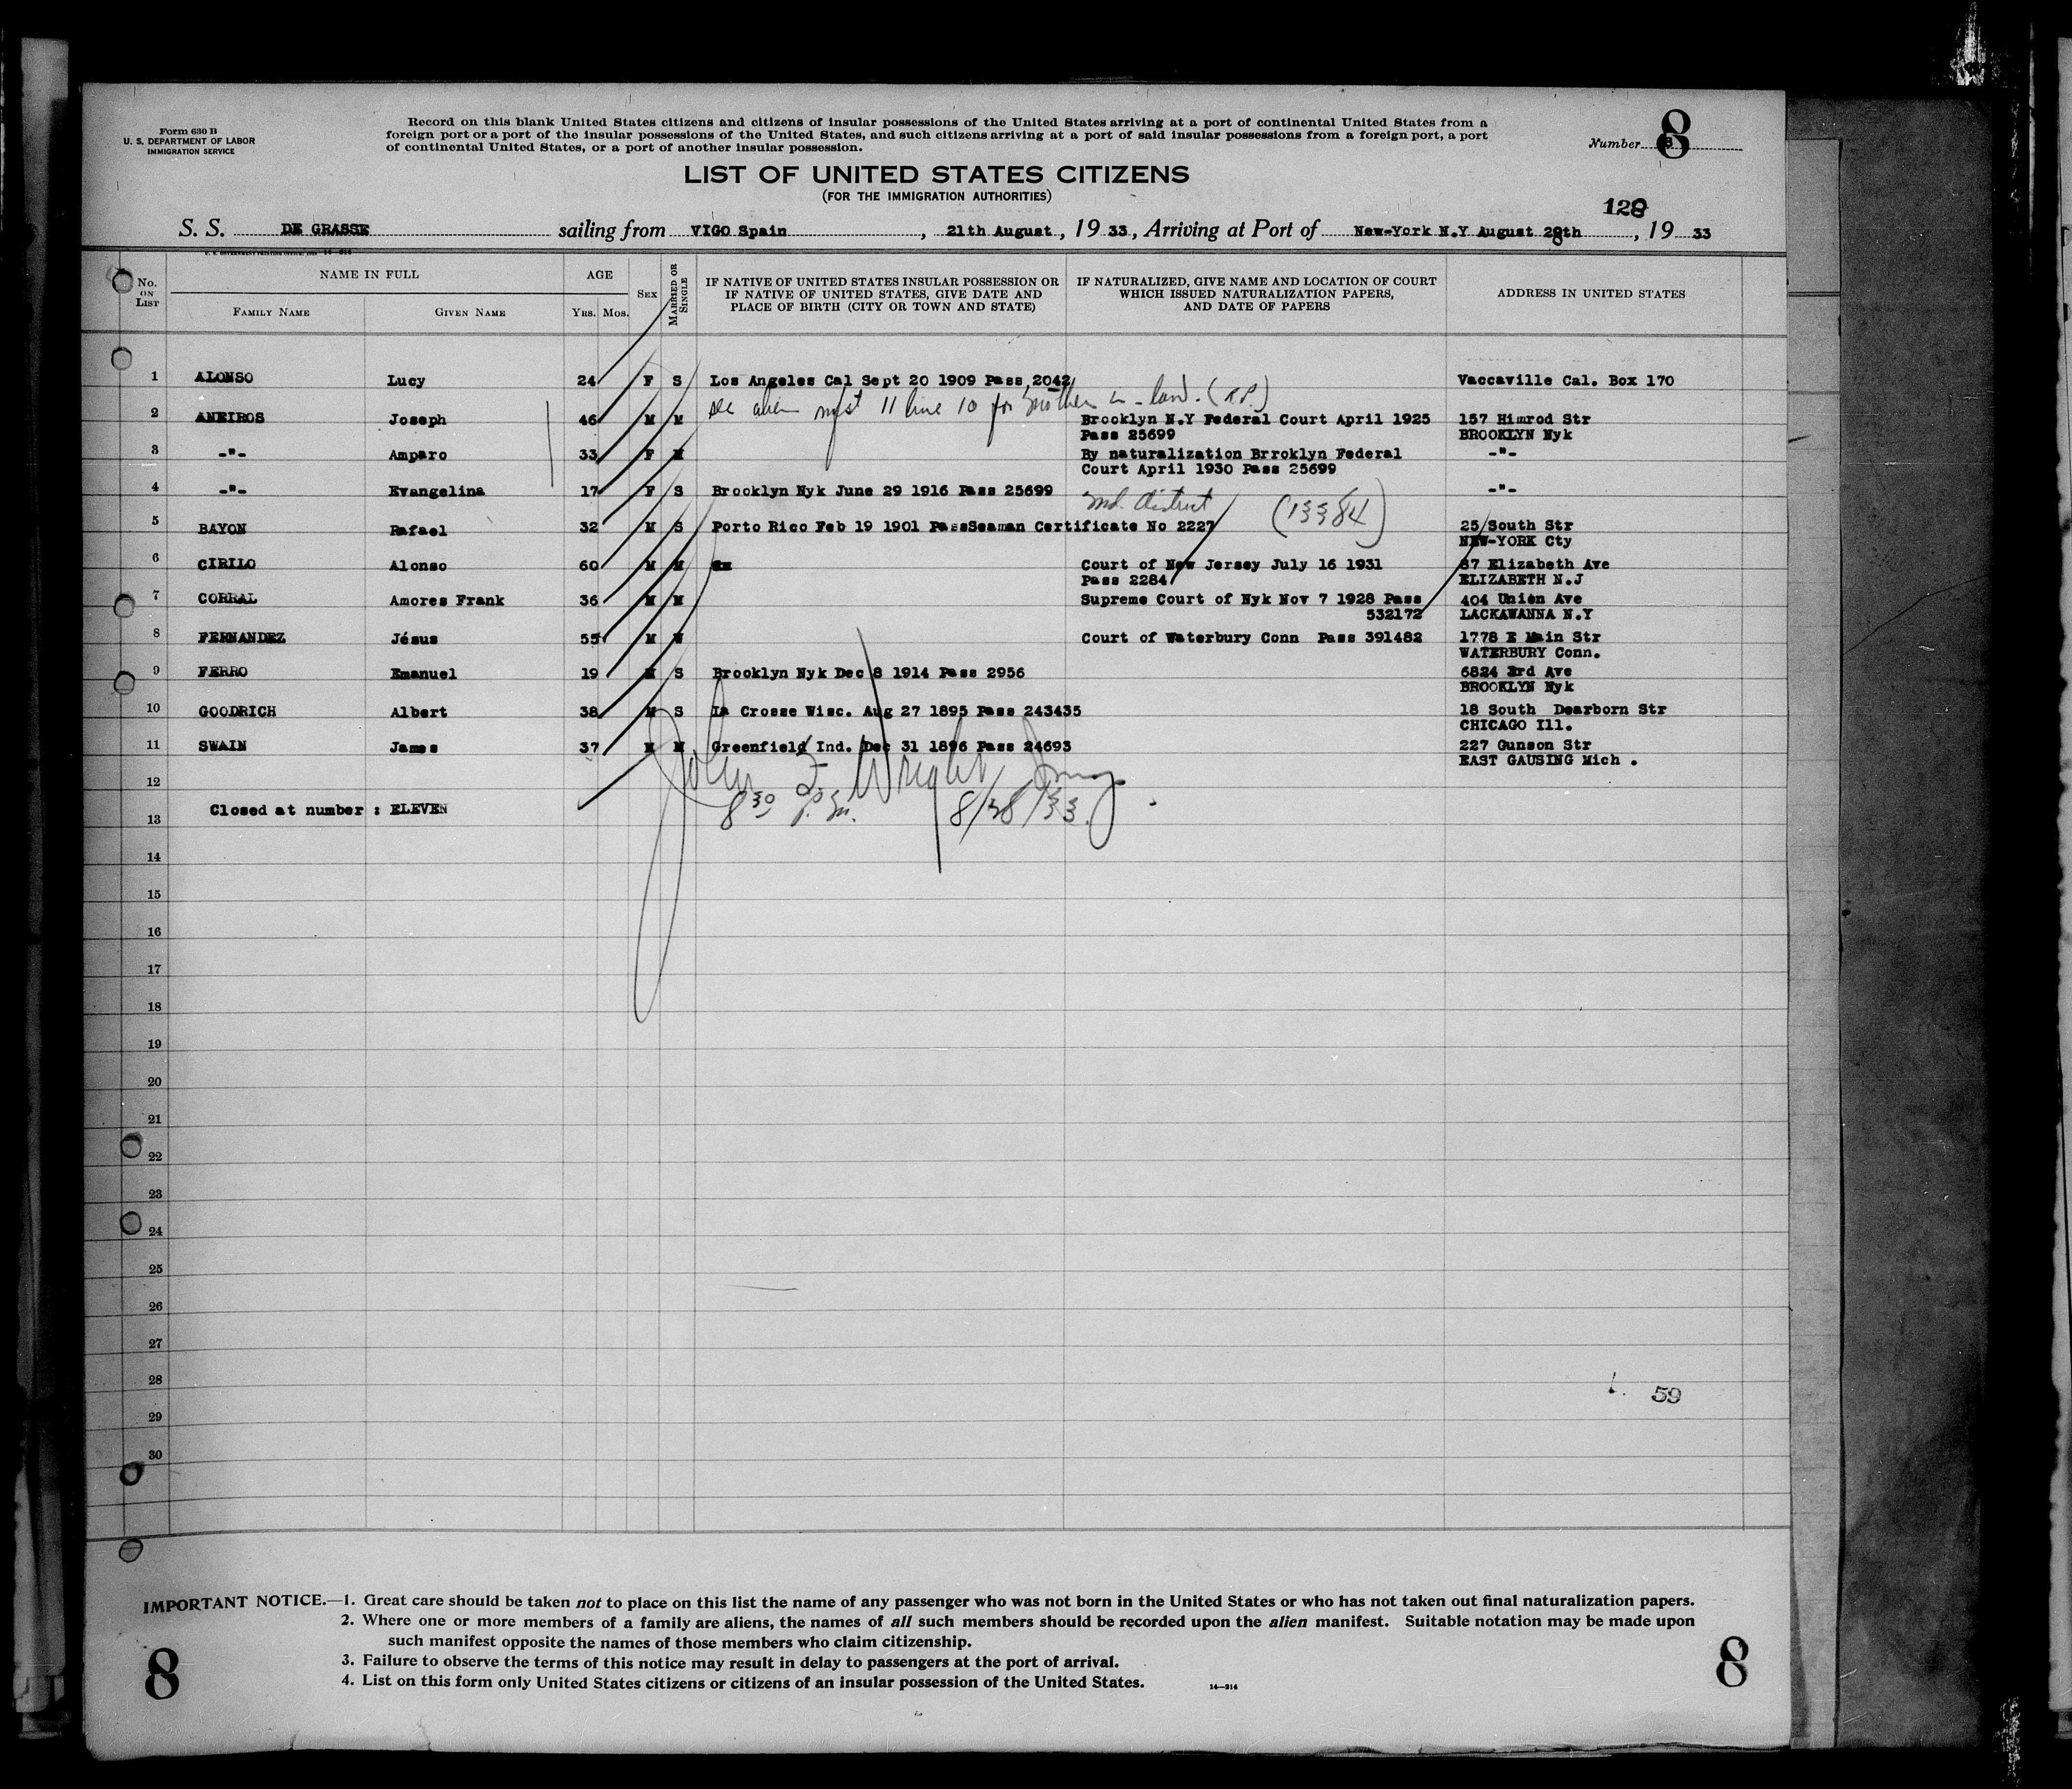 Form 630 B
U. S. DEPARTMENT OF LABOR
IMMIGRATION SERVICE
Record on this blank United States citizens and citizens of insular possessions of the United States arriving at a port of continental United States from a
foreign port or a port of the insular possessions of the United States, and such citizens arriving at a port of said insular possessions from a foreign port, a port
of continental United States, or a port of another insular possession.
Number 8
LIST OF UNITED STATES CITIZENS
(FOR THE IMMIGRATION AUTHORITIES)
128
S. S. DE GRASSE sailing from VIGO Spain , 21th August , 19 33, Arriving at Port of New-York N.Y August 28th , 19 33
No. ON LIST
NAME IN FULL
FAMILY NAME
GIVEN NAME
AGE
YRS. MOS.
SEX
MARRIED OR SINGLE
IF NATIVE OF UNITED STATES INSULAR POSSESSION OR
IF NATIVE OF UNITED STATES, GIVE DATE AND
PLACE OF BIRTH (CITY OR TOWN AND STATE)
IF NATURALIZED, GIVE NAME AND LOCATION OF COURT
WHICH ISSUED NATURALIZATION PAPERS,
AND DATE OF PAPERS
ADDRESS IN UNITED STATES
1 ALONSO Lucy 24 F S Los Angeles Cal Sept 20 1909 Pass 2042 Vaccaville Cal. Box 170
see alien mfst 11 line 10 for mother in-law. (R.P.)
2 ANEIROS Joseph 46 M M Brooklyn N.Y Federal Court April 1925 157 Himrod Str
Pass 25699 BROOKLYN Nyk
3 -"- Amparo 33 F M By naturalization Brroklyn Federal -"-
Court April 1930 Pass 25699
4 -"- Evangelina 17 F S Brooklyn Nyk June 29 1916 Pass 25699 -"-
district (13384)
5 BAYON Rafael 32 M S Porto Rico Feb 19 1901 PassSeaman Certificate No 2227 25 South Str
NEW-YORK Cty
6 CIRILO Alonso 60 M M Court of New Jersey July 16 1931 87 Elizabeth Ave
Pass 2284 ELIZABETH N.J
7 CORRAL Amores Frank 36 M M Supreme Court of Nyk Nov 7 1928 Pass 404 Union Ave
532172 LACKAWANNA N.Y
8 FERNANDEZ Jésus 55 M Court of Waterbury Conn Pass 391482 1778 E Main Str
WATERBURY Conn.
9 FERRO Emanuel 19 M S Brooklyn Nyk Dec 8 1914 Pass 2956 6824 3rd Ave
BROOKLYN Nyk
10 GOODRICH Albert 38 M S La Crosse Wisc. Aug 27 1895 Pass 243435 18 South Dearborn Str
CHICAGO Ill.
11 SWAIN James 37 M M Greenfield Ind. Dec 31 1896 Pass 24693 227 Gunson Str
EAST GAUSING Mich .
12
John F Wright
Closed at number : ELEVEN
8 30 P.M. 8/28/33
13
14
15
16
17
18
19
20
21
22
23
24
25
26
27
28
59
29
30
IMPORTANT NOTICE.—1. Great care should be taken not to place on this list the name of any passenger who was not born in the United States or who has not taken out final naturalization papers.
2. Where one or more members of a family are aliens, the names of all such members should be recorded upon the alien manifest. Suitable notation may be made upon
such manifest opposite the names of those members who claim citizenship.
3. Failure to observe the terms of this notice may result in delay to passengers at the port of arrival.
4. List on this form only United States citizens or citizens of an insular possession of the United States.
14—214
8
8